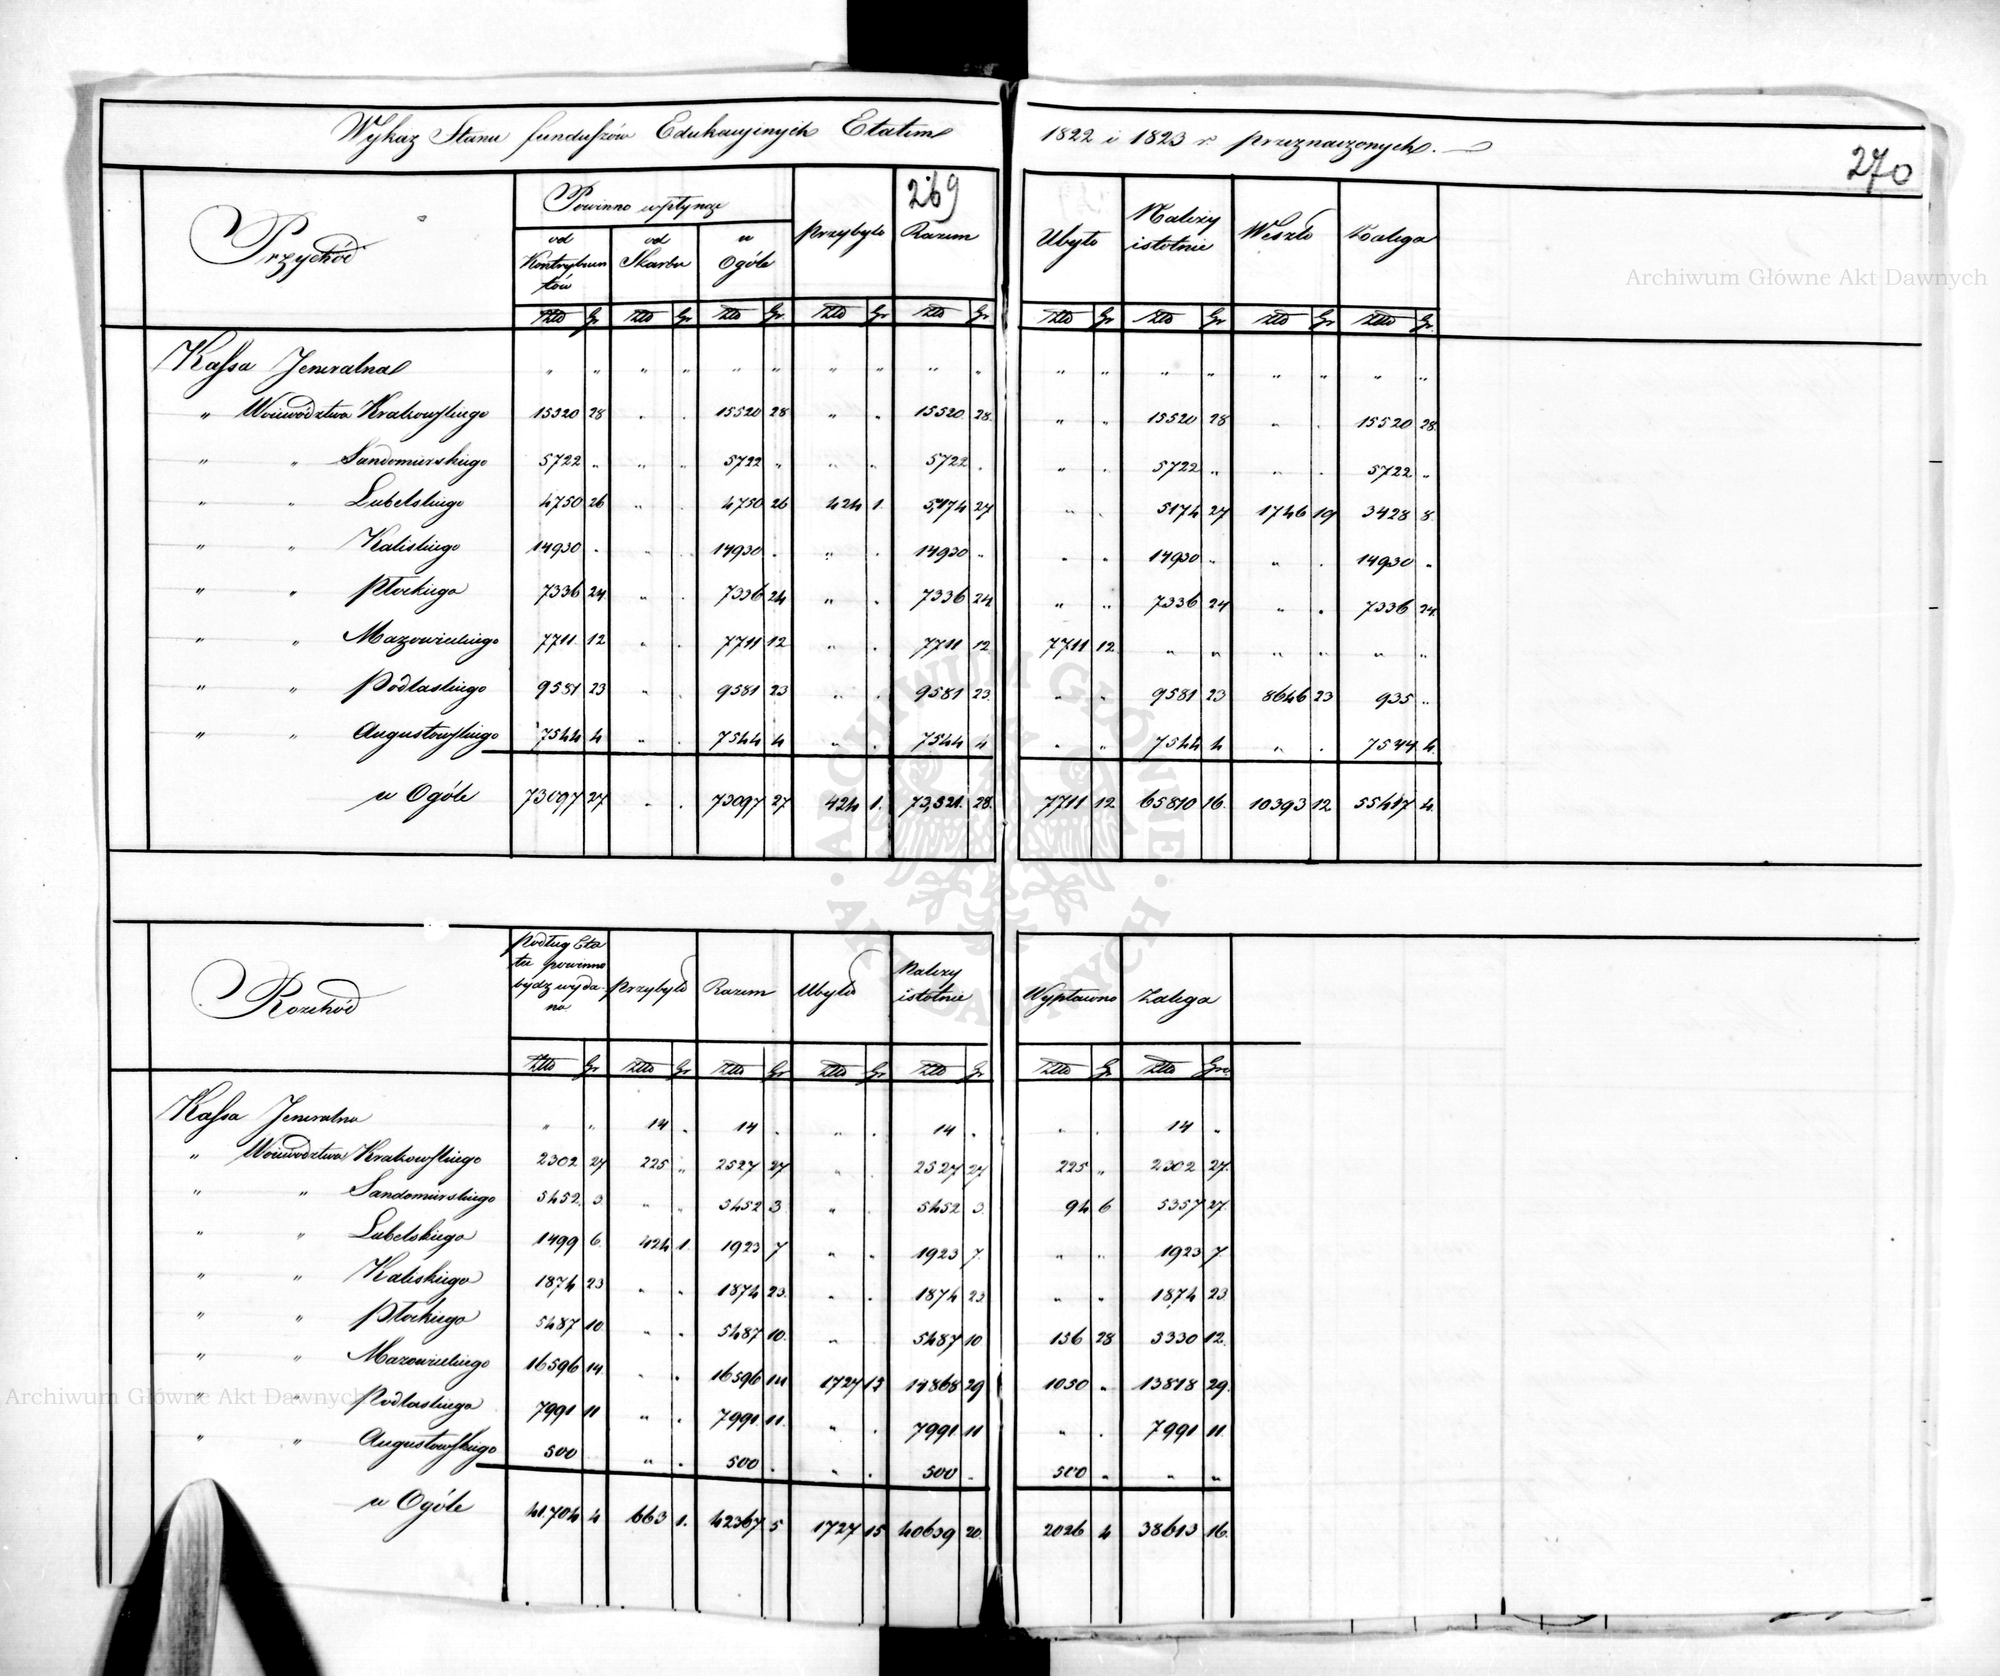 Wykaz Stanu funduszów Edukacyinych Etatem 1822 i 1823 r. przeznaczonych.
269
270
Przychód
Powinno wpłynąć
od Kontrybuentów
od Skarbu
w Ogóle
przybyło
Razem
Ubyło
Należy istotnie
Weszło
Zalega
Złt Gr Złt Gr Złt Gr Złt Gr Złt Gr Złt Gr Złt Gr Złt Gr Złt Gr
Kassa Jeneralna " " " " " " " " " " " " " " " " " "
" Woiewództwa Krakowskiego 15520 28 " " 15520 28 " " 15520 28 " " 15520 28 " " 15520 28
" " Sandomierskiego 5722 " " " 5722 " " " 5722 " " " 5722 " " " 5722 "
" " Lubelskiego 4750 26 " " 4750 26 424 1 5,174 27 " " 5174 27 1746 19 3428 8
" " Kaliskiego 14930 " " " 14930 " " " 14930 " " " 14930 " " " 14930 "
" " Płockiego 7336 24 " " 7336 24 " " 7336 24 " " 7336 24 " " 7336 24
" " Mazowieckiego 7711 12 " " 7711 12 " " 7711 12 7711 12 " " " " " "
" " Podlaskiego 9581 23 " " 9581 23 " " 9581 23 " " 9581 23 8646 23 935 "
" " Augustowskiego 7544 4 " " 7544 4 " " 7544 4 " " 7544 4 " " 7544 4
w Ogóle 73097 27 " " 73097 27 424 1 73,521 28 7711 12 65810 16 10393 12 55417 4
Rozchód
Podług Etatu powinno bydz wydano
przybyło
Razem
Ubyło
Należy istotnie
Wypłacono
Zalega
Złt Gr Złt Gr Złt Gr Złt Gr Złt Gr Złt Gr Złt Gro
Kassa Jeneralna " " 14 " 14 " " " 14 " " " 14 "
" Woiewództwa Krakowskiego 2302 27 225 " 2527 27 " " 2527 27 225 " 2302 27
" " Sandomierskiego 5452 3 " " 5452 3 " " 5452 3 94 6 5357 27
" " Lubelskiego 1499 6 424 1 1923 7 " " 1923 7 " " 1923 7
" " Kaliskiego 1874 23 " " 1874 23 " " 1874 23 " " 1874 23
" " Płockiego 5487 10 " " 5487 10 " " 5487 10 156 28 5330 12
" " Mazowieckiego 16596 14 " " 16596 14 1727 15 14868 29 1050 " 13818 29
" " Podlaskiego 7991 11 " " 7991 11 " " 7991 11 " " 7991 11
" " Augustowskiego 500 " " 500 " " " 500 " 500 " " "
w Ogóle 41.704 4 663 1 42367 5 1727 15 40639 20 2026 4 38613 16
Archiwum Główne Akt Dawnych
Archiwum Główne Akt Dawnych
ARCHIWUM GŁÓWNE AKT DAWNYCH